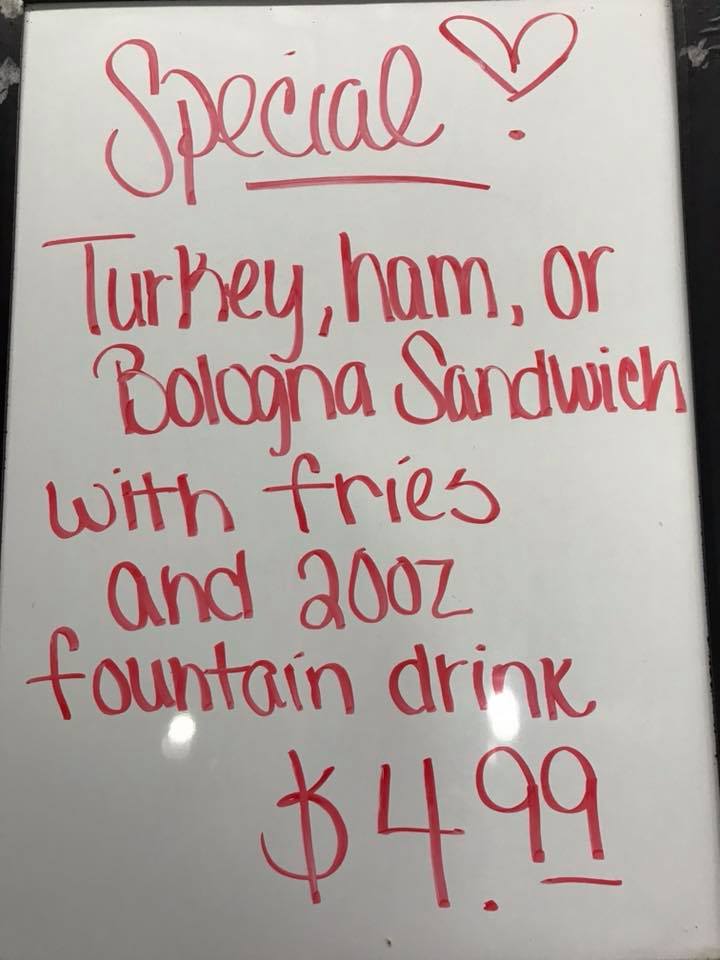 Special
Turkey, ham, or
Bologna Sandwich
with fries
and 20oz
fountain drink
$4.99